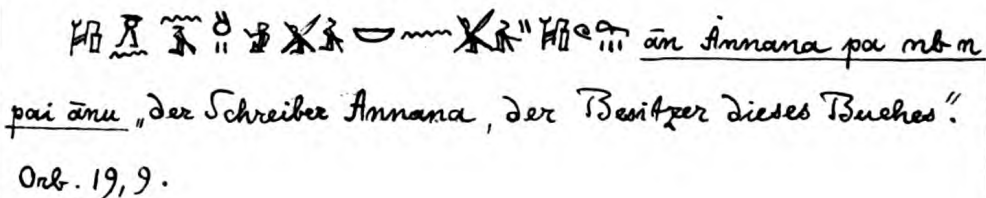 ān Annana pa nb n
pai ānu „der Schreiber Annana, der Besitzer dieses Buches“.
Orb. 19, 9.